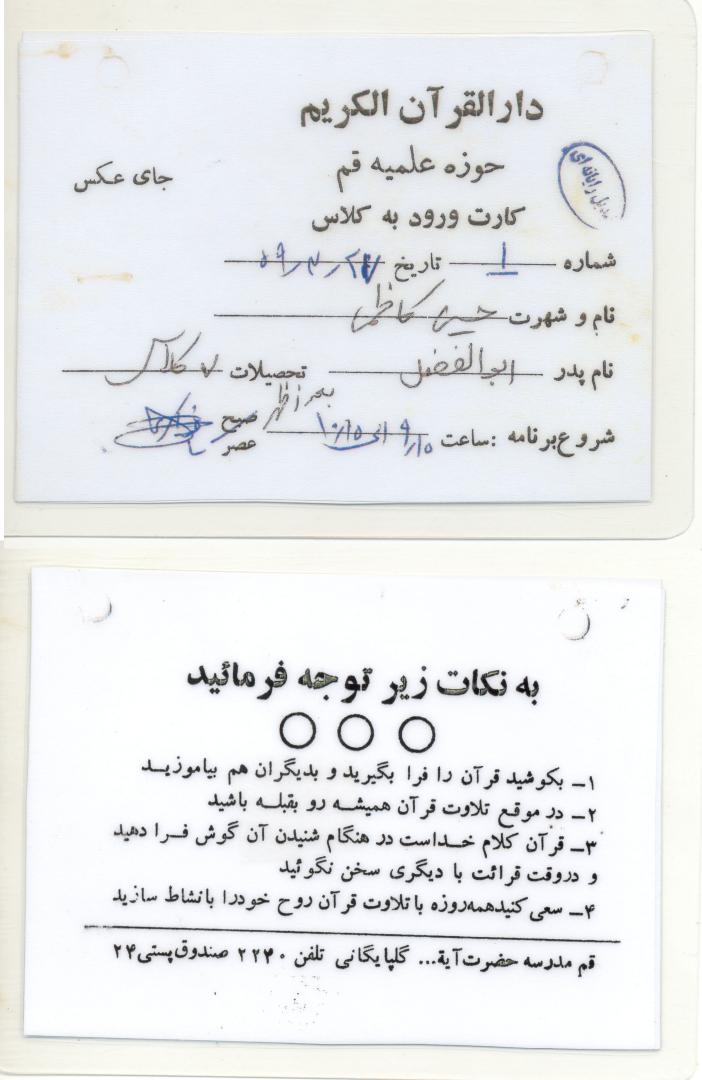 دارالقرآن الکریم
حوزه علمیه قم
جای عکس
کارت ورود به کلاس
شماره ۱ تاریخ ۵۹٫۳٫۲۷
نام و شهرت حسین کاظمی
نام پدر ابوالفضل تحصیلات ۷ کلاس
بعد از ظهر
شروع برنامه : ساعت ۹٫۱۵ الی ۱۰٫۱۵ صبح
عصر
به نکات زیر توجه فرمائید
۱ـ بکوشید قرآن را فرا بگیرید و بدیگران هم بیاموزیـد
۲ـ در موقع تلاوت قرآن همیشـه رو بقبلـه باشید
۳ـ قرآن کلام خـداست در هنگام شنیدن آن گوش فـرا دهید
و دروقت قرائت با دیگری سخن نگوئید
۴ـ سعی کنیدهمه‌روزه با تلاوت قرآن روح خودرا بانشاط سازید
قم مدرسه حضرت‌آیة... گلپایگانی تلفن ۲۲۴۰ صندوق‌پستی۲۴